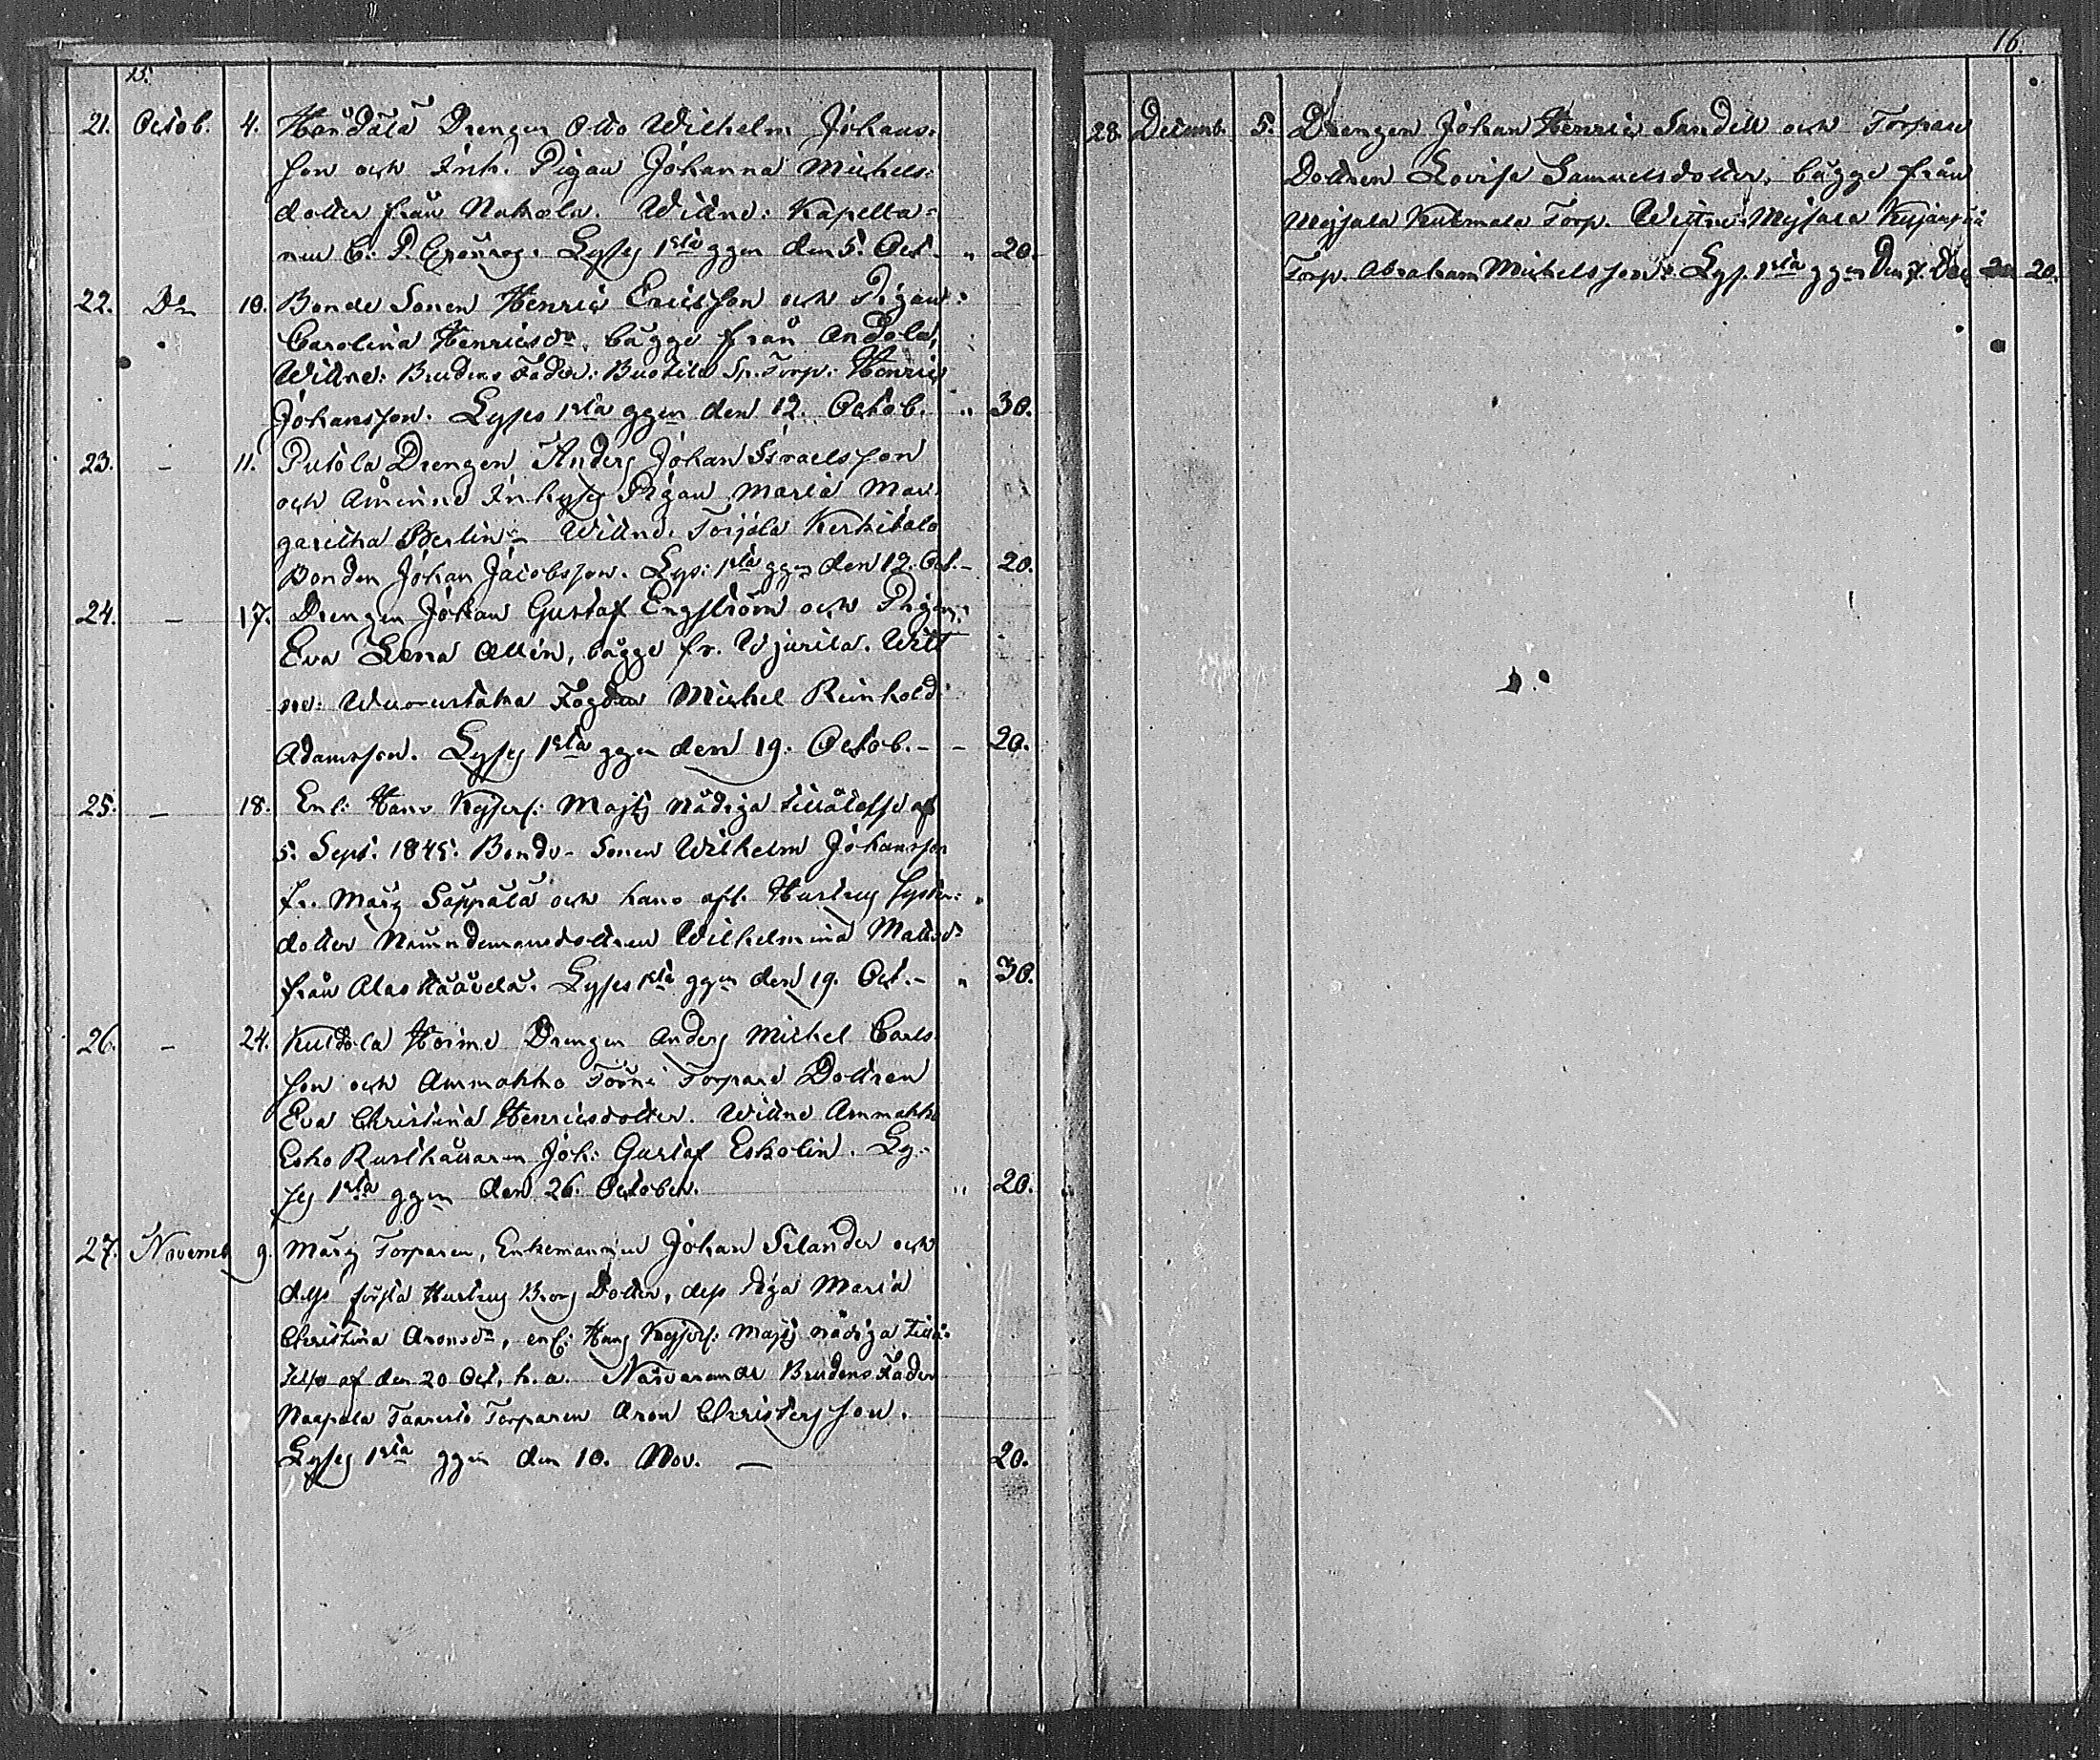 15.
21. Octob. 4. Händälä Drengen Otto Wilhelm Johans-
son och Inh. Pigan Johanna Michels-
dotter från Nakola. Wittne: Kapella-
nen C. P. Lyses 1sta ggen den 5. Oct. " 20.
22. Do 10. Bonde Sonen Henric Ericsson och Pigan
Carolina Henricsdr, bägge från Andola,
Wittne: Brudens Fader: Buotila Sr. Torp. Henric
Johansson. Lyses 1sta ggen den 12. Octob. " 30.
23. - 11. Putola Drengen Anders Johan Israelsson
och Inhyses Pigan Maria Mar-
garetha Berlin - Wittne. Torjola Kerkitalo
Bonden Johan Jacobsson. Lys: 1sta ggen den 12. Oct. - 20.
24. - 17. Drengen Johan Gustaf Engström och Pigan
Eva Lena Allén, bägge fr. Wjurila. Witt
ne: Wuorentaka Fogden Michel Reinhold
Adamsson. Lyses 1sta ggen den 19. Octob. - - 20.
25. - 18. Enl: Hans Kejserl: Majts Nådiga tillåtelse af
5. Sept. 1845. Bonde-Sonen Wilhelm Johansson
fr. Märy Säppälä och hans afl. Hustrus syster-
dotter Nämndemansdottren Wilhelmina Mattsdr
från Alas Lyses 1sta ggen den 19. Oct. - " 30.
26. - 24. Kuttola Heime Drengen Anders Michel Carls-
son och Ammakko Torpare Dottren
Eva Christina Henricsdotter. Wittne Ammakko
Esko Rusthållaren Joh: Gustaf Eskolin. Ly-
ses 1sta ggen den 26. October. " 20.
27. Novemb 9. Märy Torparen, Enkemannen Johan Silander och
dess första Hustrus Brors Dotter, dess Piga Maria
Christina Aronsdr, enl: Hans Kejserl: Majts nådiga tillå-
telse af den 20 Oct. h.a. Närvarande Brudens Fader
Naapala Torparen Aron Christersson.
Lyses 1sta ggen den 10. Nov. - 20.
16.
28. Decemb. 5. Drengen Johan Henric Sandell och Torpare
Dottren Lovisa Samuelsdotter, bägge från
Meisala Kulmala Torp. Wittne: Meisala
Torp. Abraham Michelsson. Lys. 1sta ggen den 7. Dec 20.